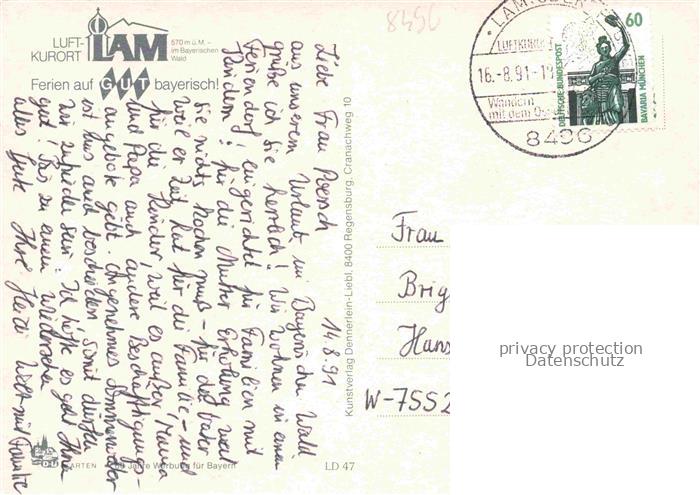 LUFT-
KURORT LAM
570 m ü.M. –
im Bayerischen
Wald
Ferien auf GUT bayerisch!
14.8.91
Liebe Frau Poersch
aus unserem Urlaub im Bayerischen Wald
grüße ich Sie herzlich! Wir wohnen in einem
Feriendorf! eingerichtet für Familien mit
Kindern! für die Mutter Erholung weil
sie nichts kochen muß – für den Vater
weil er Zeit hat für die Familie, – und
für die Kinder, weil es außer Mama
und Papa auch andere Beschäftigungs-
angebote gibt. Angenehmes Sommerwetter
ist uns auch beschieden. Somit dürfen
wir zufrieden sein! Ich hoffe es geht Ihnen
gut! Bis zu einem Wiedersehen
alles Gute Ihre Heidi mit Familie
KARTEN Jahre Werbung für Bayern
LD 47
Kunstverlag Dennerlein-Liebl, 8400 Regensburg, Cranachweg 10
8496
LAM
LUFTKURORT
16.-8.91-1
Wandern
mit dem
8496
60
DEUTSCHE BUNDESPOST
BAVARIA MÜNCHEN
Frau
Brig
Hans
W-7552
privacy protection
Datenschutz